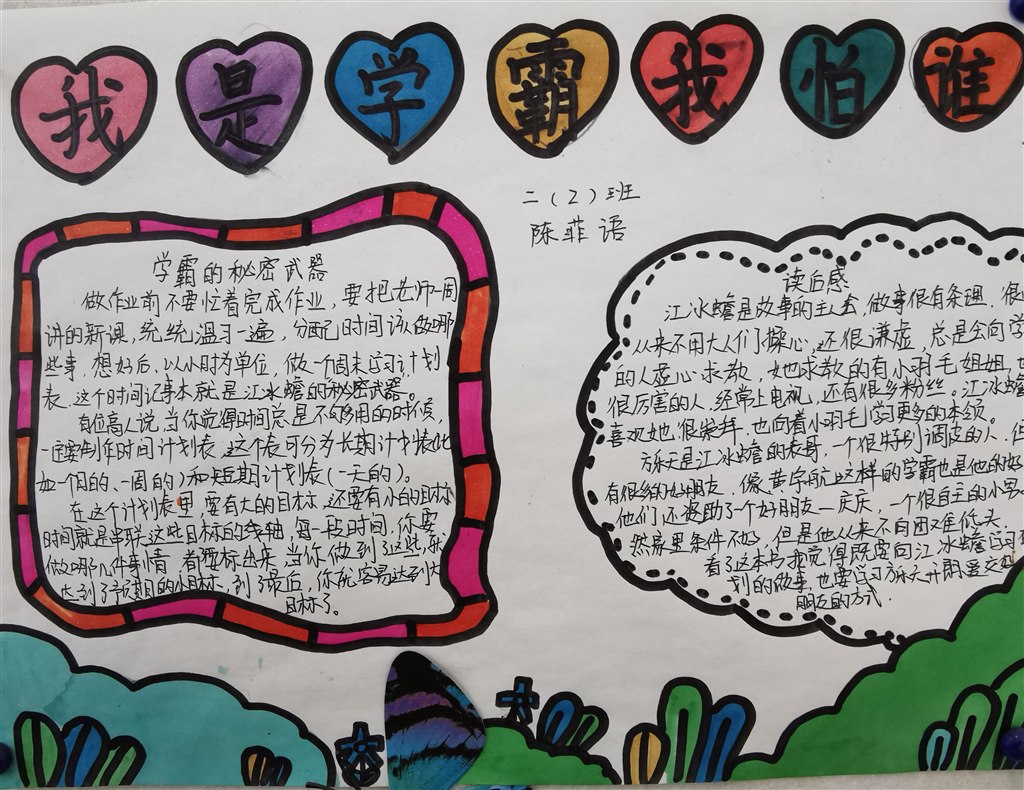 我是学霸我怕谁
二（2）班
陈菲语
学霸的秘密武器
做作业前不要忙着完成作业，要把老师一周
讲的新课，统统温习一遍，分配时间该做哪
些事，想好后，以小时为单位，做一个周末学习计划
表，这个时间记事本就是江冰蟾的秘密武器。
有位高人说，当你觉得时间总是不够用的时候，
一定要制作时间计划表，这个表可分为长期计划表（比
如一个月的、一周的）和短期计划表（一天的）。
在这个计划表里要有大的目标，还要有小的目标
时间就是串联这些目标的线轴，每一段时间，你要
做哪几件事情，都要标出来，当你做到这些，就
达到了预期的小目标，到了最后，你就容易达到大
目标了。
读后感
江冰蟾是故事的主人公，做事很有条理，很
从来不用大人们操心，还很谦虚，总是会向学
的人虚心求教，她求教的有小羽毛姐姐，
很厉害的人，经常上电视，还有很多粉丝。江冰蟾
喜欢她，很崇拜，也向着小羽毛学习更多的本领。
乐天是江冰蟾的表哥，一个很特别调皮的人，但
有很多的好朋友，像黄宁航这样的学霸也是他的好
他们还资助了一个好朋友—庆庆，一个很自主的小男
然家里条件不好，但是他从来不向困难低头。
看了这本书，我觉得既要向江冰蟾学习
划的做事，也要学习乐天开朗爱交
朋友的方式．